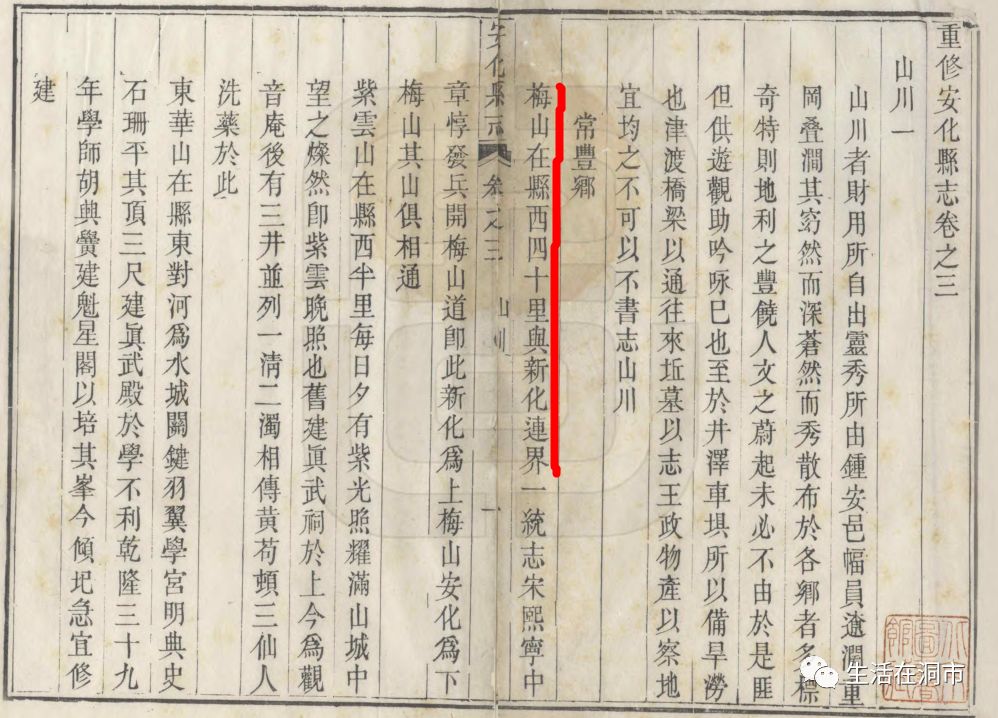 重修安化縣志卷之三
山川一
山川者財用所自出靈秀所由鍾安邑幅員遼濶重
岡叠澗其窈然而深蒼然而秀散布於各鄉者多標
奇特則地利之豐饒人文之蔚起未必不由於是匪
但供遊觀助吟咏巳也至於井澤車埧所以備旱澇
也津渡橋梁以通往來坵墓以志王政物產以察地
宜均之不可以不書志山川
常豐鄉
梅山在縣西四十里與新化連界一統志宋熙寧中
安化縣志
卷之三
山川
一
章惇發兵開梅山道卽此新化爲上梅山安化爲下
梅山其山俱相通
紫雲山在縣西半里每日夕有紫光照耀滿山城中
望之燦然卽紫雲晚照也舊建眞武祠於上今爲觀
音庵後有三井並列一清二濁相傳黃苟頓三仙人
洗藥於此
東華山在縣東對河爲水城關鍵羽翼學宮明典史
石珊平其頂三尺建眞武殿於學不利乾隆三十九
年學師胡典黌建魁星閣以培其峯今傾圮急宜修
建
生活在洞市